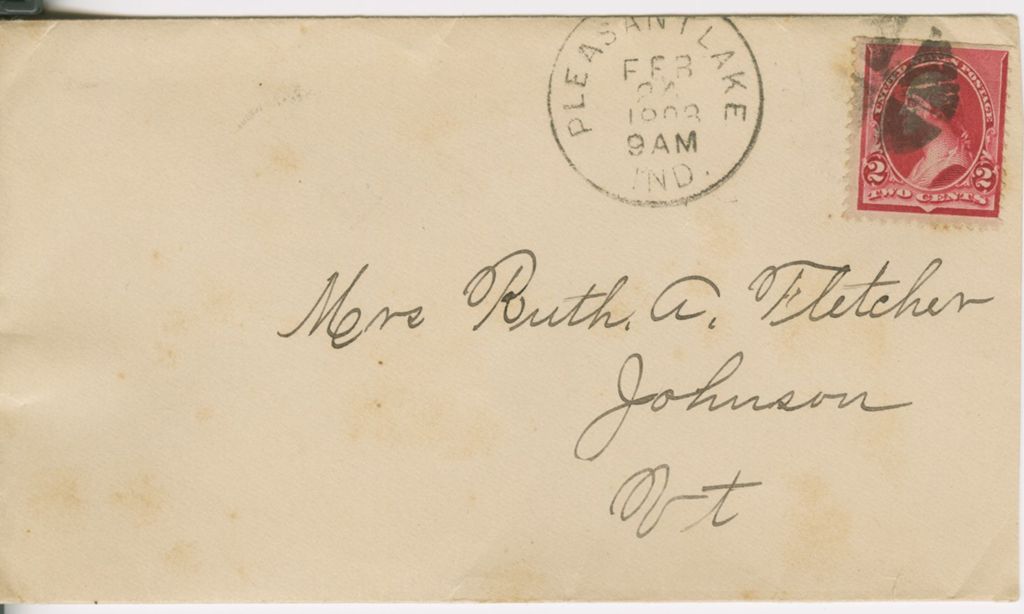 PLEASANT LAKE
FEB
9AM
IND.
UNITED STATES POSTAGE
2 2
TWO CENTS
Mrs Ruth. A. Fletcher
Johnson
Vt